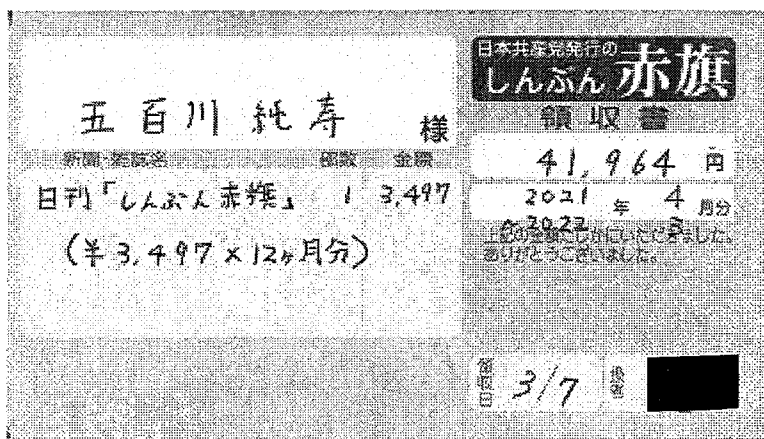 五百川純寿 様
新聞・雑誌名 部数 金額
日刊「しんぶん赤旗」 1 3,497
(¥3,497×12ヶ月分)
日本共産党発行の
しんぶん赤旗
領収書
41,964 円
2021 年 4 月分
~2022 3
上記の金額たしかにいただきました。
ありがとうございました。
領収日 3/7